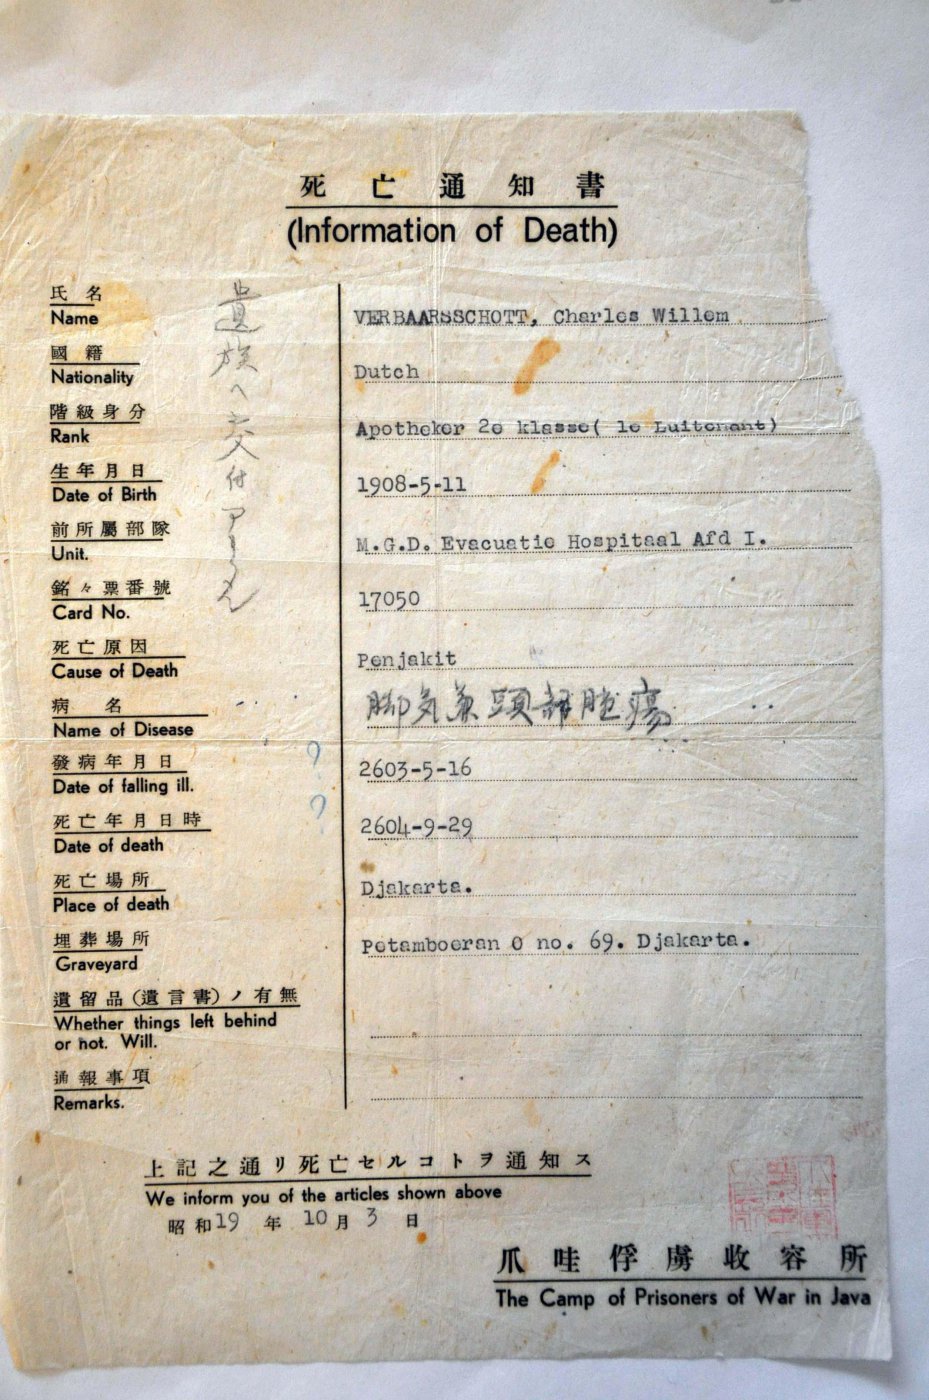 死亡通知書
(Information of Death)
氏名
Name
VERBAARSSCHOTT, Charles Willem
國籍
Nationality
Dutch
階級身分
Rank
Apotheker 2e klasse( 1e Luitenant)
生年月日
Date of Birth
1908-5-11
前所屬部隊
Unit.
M.G.D. Evacuatie Hospitaal Afd I.
銘々票番號
Card No.
17050
死亡原因
Cause of Death
Penjakit
病名
Name of Disease
脚気兼頭部腫瘍
發病年月日
Date of falling ill.
?
2603-5-16
死亡年月日時
Date of death
?
2604-9-29
死亡場所
Place of death
Djakarta.
埋葬場所
Graveyard
Petamboeran O no. 69. Djakarta.
遺留品(遺言書)ノ有無
Whether things left behind
or not. Will.
通報事項
Remarks.
遺族ヘ交付
上記之通リ死亡セルコトヲ通知ス
We inform you of the articles shown above
昭和19年10月3日
爪哇俘虜收容所
The Camp of Prisoners of War in Java